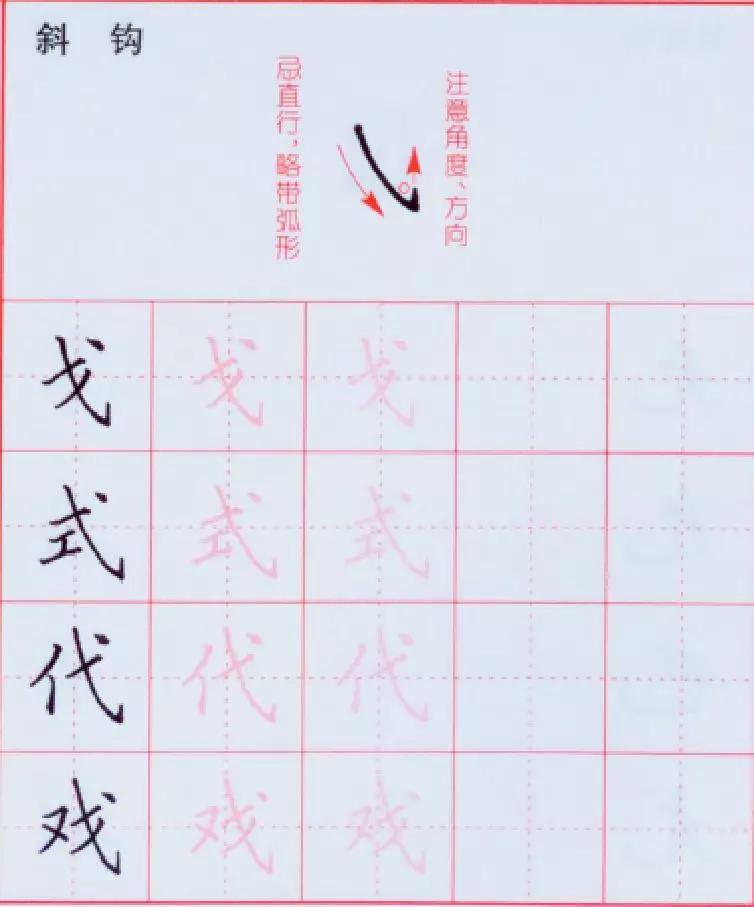 斜 钩
忌直行，略带弧形
注意角度、方向
戈 戈 戈
式 式 式
代 代 代
戏 戏 戏